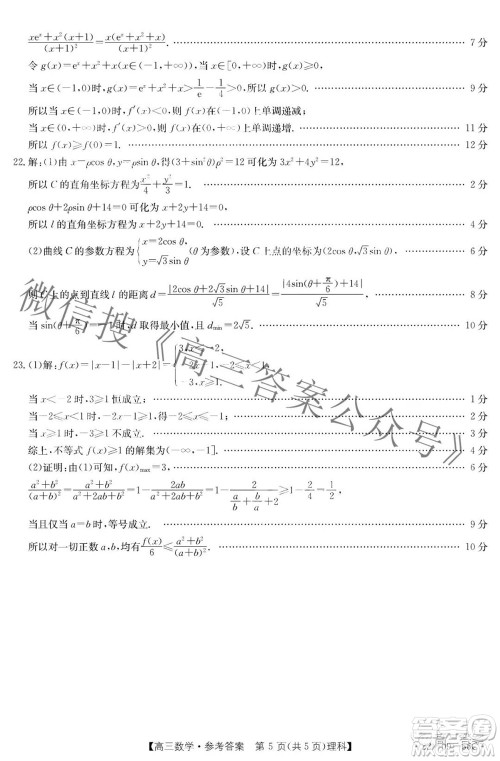 xeˣ+x²(x+1)/(x+1)²=x(eˣ+x²+x)/(x+1)². 7 分
令 g(x)=eˣ+x²+x(x∈(-1,+∞)),当 x∈[0,+∞)时,g(x)≥0,
当 x∈(-1,0)时,g(x)=eˣ+x²+x>1/e-1/4>0. 9 分
所以当 x∈(-1,0)时,f′(x)<0,f(x)在(-1,0)上单调递减;
当 x∈(0,+∞)时,f′(x)>0,f(x)在(0,+∞)上单调递增. 11 分
所以 f(x)≥f(0)=1. 12 分
22.解:(1)由 x=ρcos θ,y=ρsin θ,得(3+sin²θ)ρ²=12 可化为 3x²+4y²=12,
所以 C 的直角坐标方程为 x²/4+y²/3=1. 2 分
ρcos θ+2ρsin θ+14=0 可化为 x+2y+14=0,
所以 l 的直角坐标方程为 x+2y+14=0. 4 分
(2)曲线 C 的参数方程为{x=2cos θ, y=√3sin θ (θ 为参数),设 C 上点的坐标为(2cos θ,√3sin θ), 6 分
则 C 上的点到直线 l 的距离 d=|2cos θ+2√3sin θ+14|/√5=|4sin(θ+π/6)+14|/√5, 8 分
当 sin(θ+π/6)=-1 时,d 取得最小值,且 dmin=2√5. 10 分
23.(1)解:f(x)=|x-1|-|x+2|={3,x<-2, x<1, -3,x≥1. 1 分
当 x<-2 时,3≥1 恒成立; 1 分
当-2≤x<1 时,-2x-1≥1,解得-2≤x≤-1; 2 分
当 x≥1 时,-3≥1 不成立. 3 分
综上,不等式 f(x)≥1 的解集为(-∞,-1]. 5 分
(2)证明:由(1)可知,f(x)max=3, 6 分
(a²+b²)/(a+b)²=(a²+b²)/(a²+2ab+b²)=1-2ab/(a²+2ab+b²)=1-2/(a/b+b/a+2)≥1-2/4=1/2,
当且仅当 a=b 时,等号成立. 9 分
所以对一切正数 a,b,均有 f(x)/6≤(a²+b²)/(a+b)². 10 分
微信搜《高三答案公众号》
【高三数学·参考答案 第 5 页(共 5 页)理科】